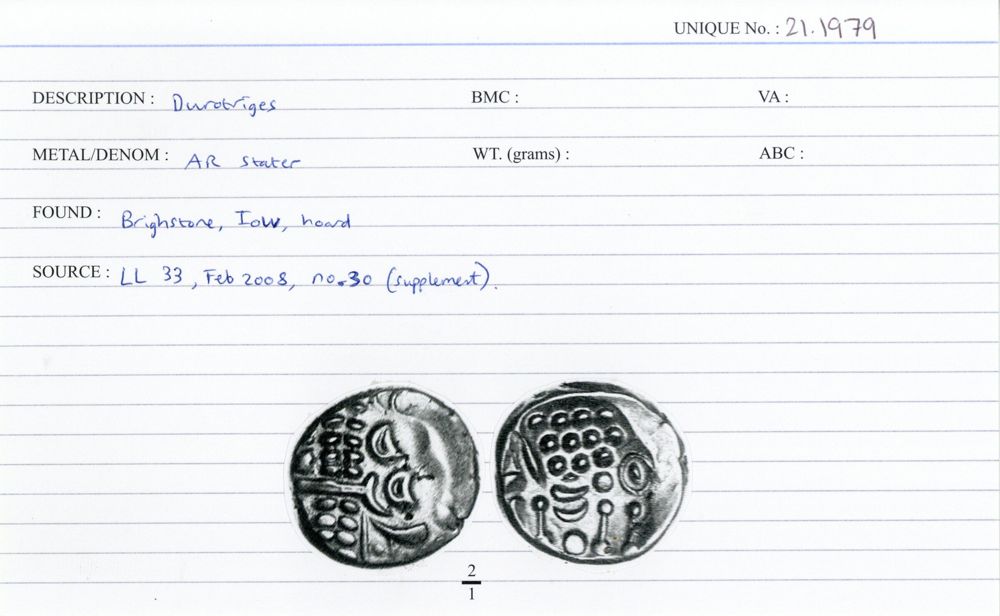 UNIQUE No. : 21.1979
DESCRIPTION : Durotriges BMC : VA :
METAL/DENOM : AR Stater WT. (grams) : ABC :
FOUND : Brighstone, IoW, hoard
SOURCE : LL 33, Feb 2008, no.30 (supplement).
2
1